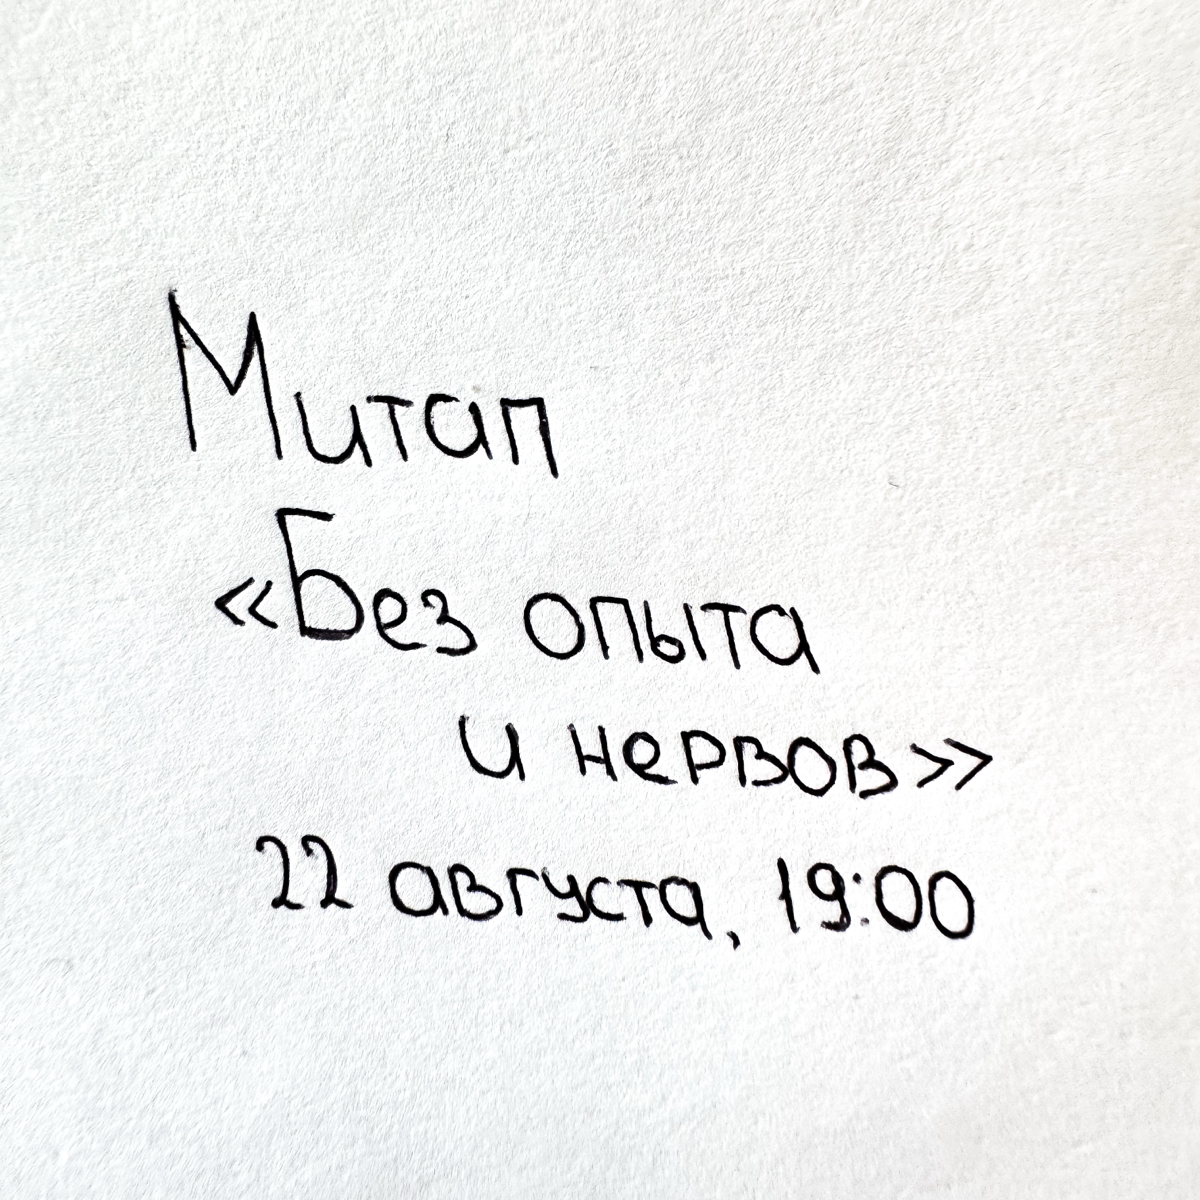 Митап
«Без опыта
и нервов»
22 августа, 19:00